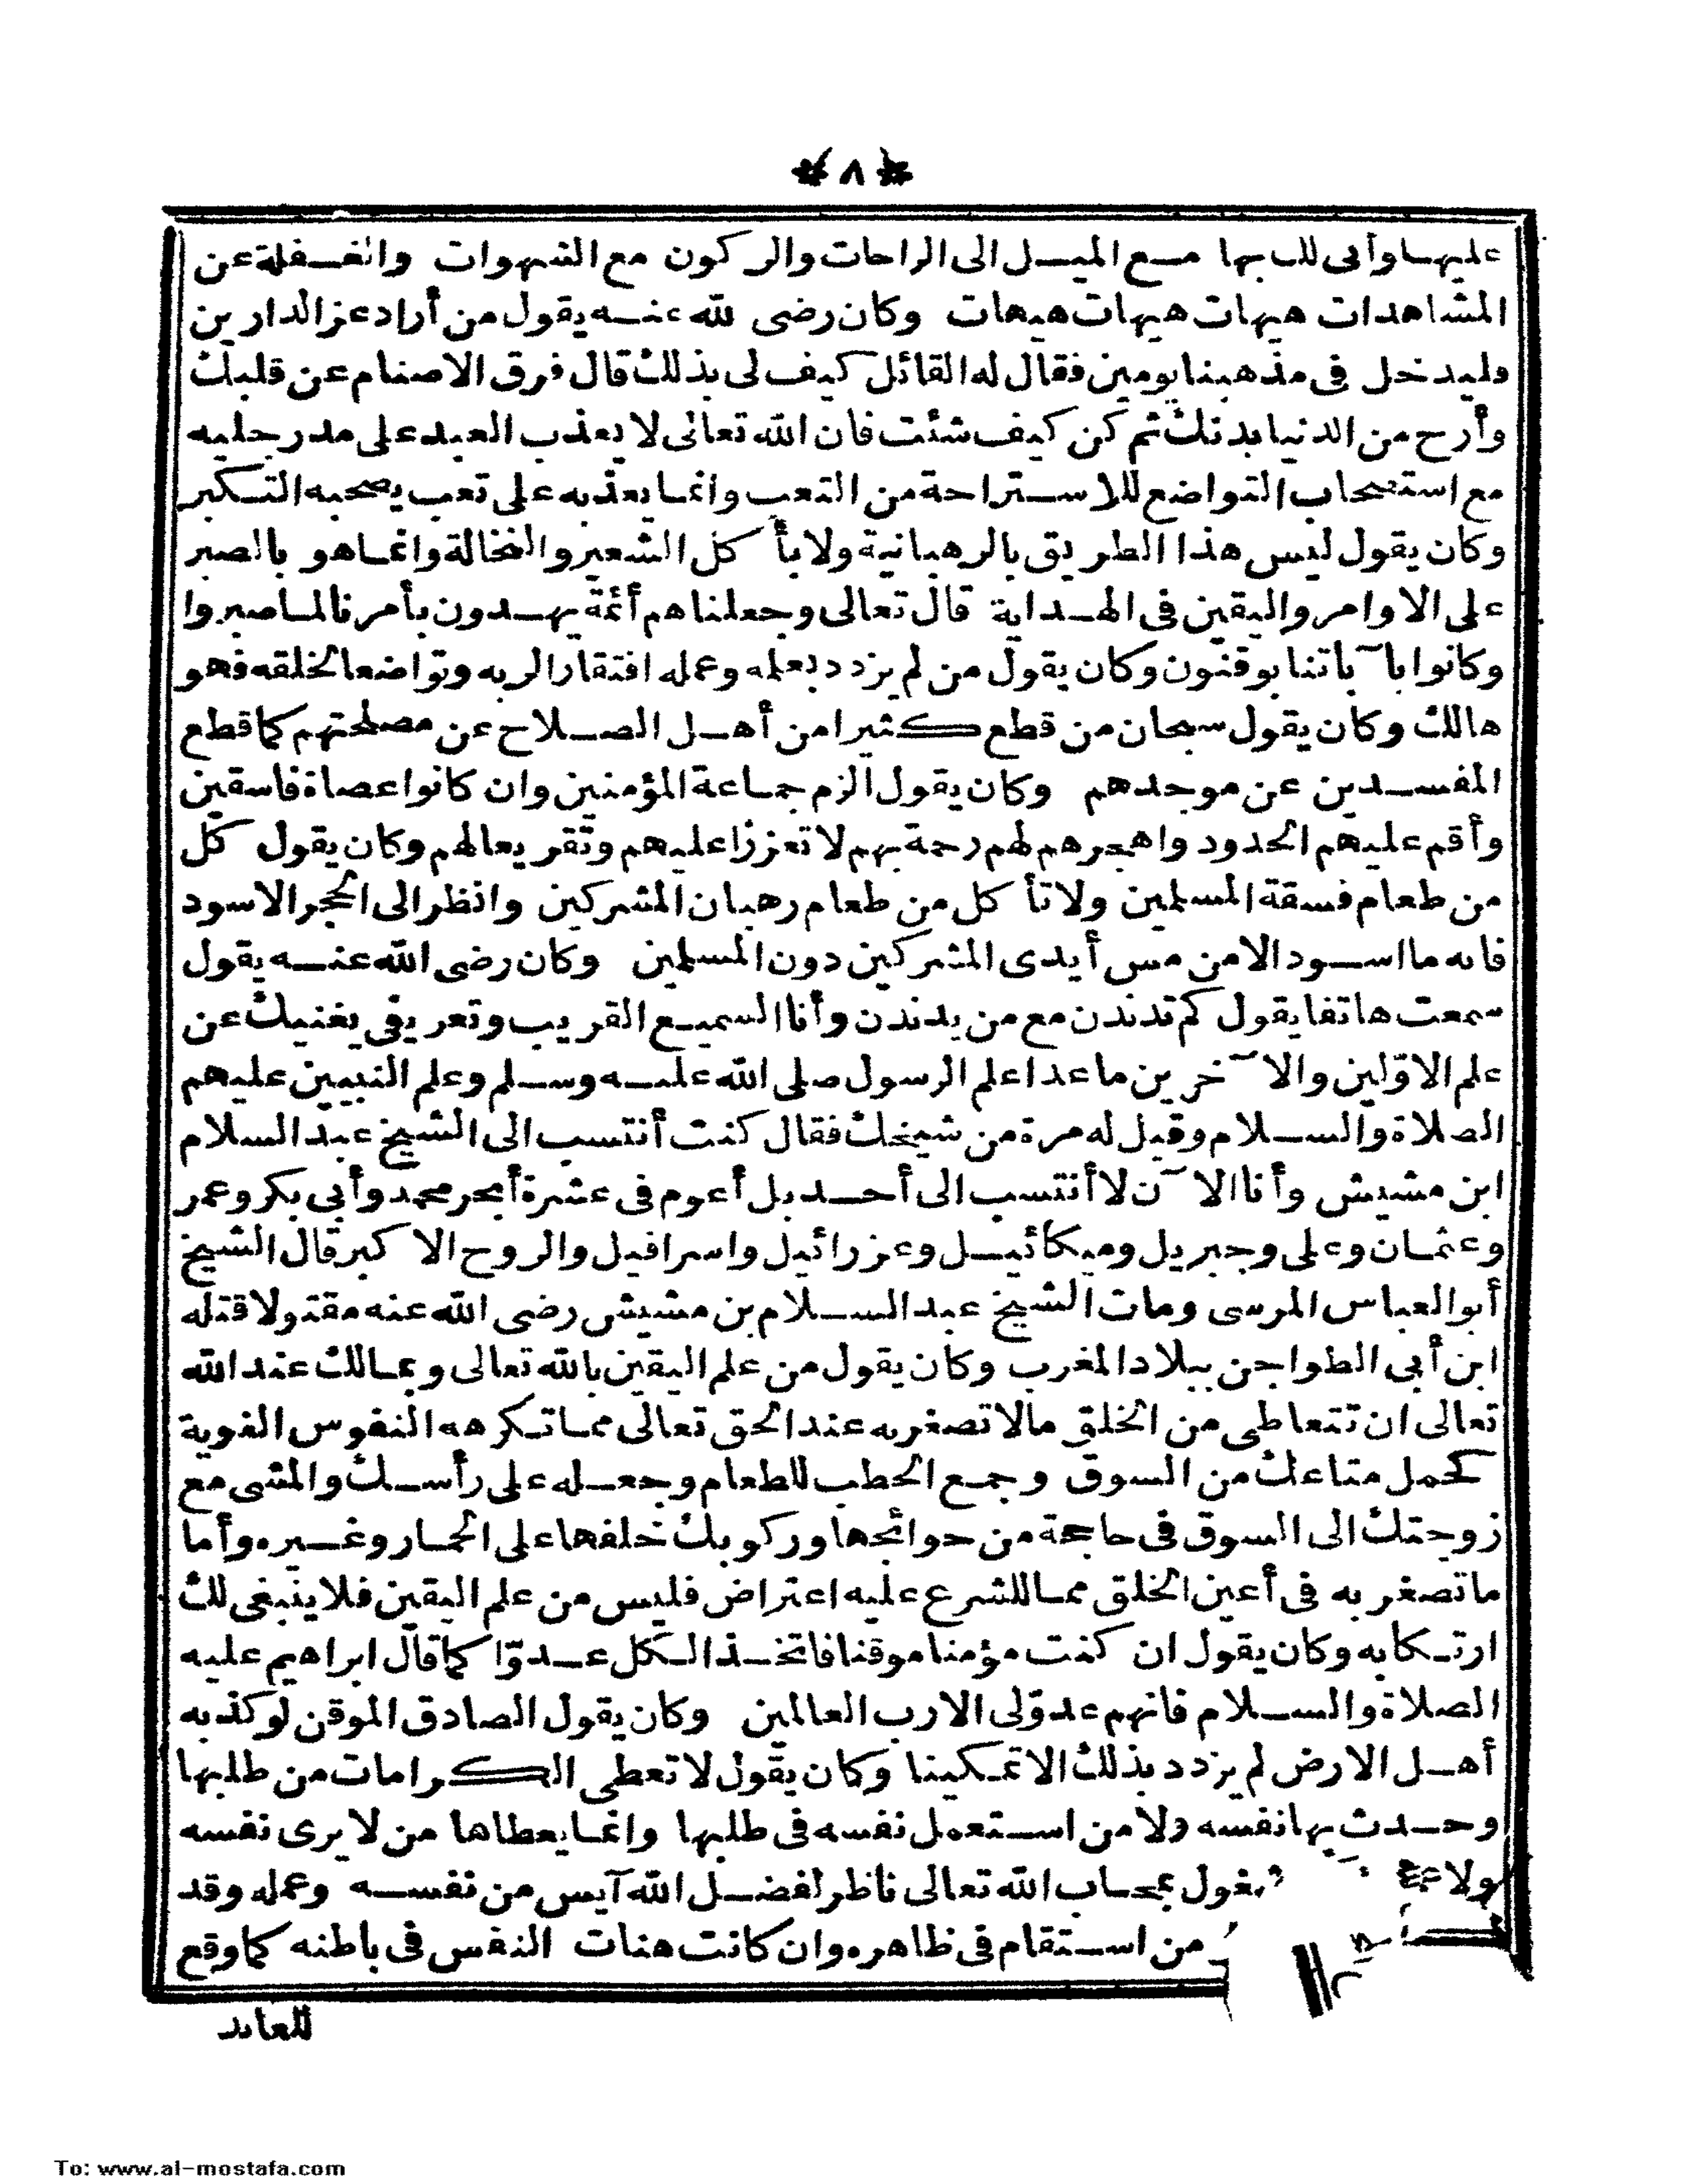 ﴿٨﴾
عليها وأنى لك بها مع الميل الى الراحات والركون مع الشهوات والغفلة عن
المشاهدات هيهات هيهات هيهات وكان رضى لله عنه يقول من أراد عز الدارين
فليدخل فى مذهبنا يومين فقال له القائل كيف لى بذلك قال فرق الاصنام عن قلبك
وأرح من الدنيا بدنك ثم كن كيف شئت فان الله تعالى لا يعذب العبد على مد رجليه
مع استصحاب التواضع للاستراحة من التعب وانما يعذبه على تعب يصحبه التكبر
وكان يقول ليس هذا الطريق بالرهبانية ولا بأكل الشعير والنخالة وانما هو بالصبر
على الاوامر واليقين فى الهداية قال تعالى وجعلناهم أئمة يهدون بأمرنا لما صبروا
وكانوا بآياتنا يوقنون وكان يقول من لم يزدد بعلمه وعمله افتقارا لربه وتواضعا لخلقه فهو
هالك وكان يقول سبحان من قطع كثيرا من أهل الصلاح عن مصلحتهم كما قطع
المفسدين عن موجدهم وكان يقول الزم جماعة المؤمنين وان كانوا عصاة فاسقين
وأقم عليهم الحدود واهجرهم لهم رحمة بهم لا تعززا عليهم وتقريعا لهم وكان يقول كل
من طعام فسقة المسلمين ولا تأكل من طعام رهبان المشركين وانظر الى الحجر الاسود
فانه ما اسود الا من مس أيدى المشركين دون المسلمين وكان رضى الله عنه يقول
سمعت هاتفا يقول كم تدندن مع من يدندن وأنا السميع القريب وتعريفى يغنيك عن
علم الاوّلين والآخرين ما عدا علم الرسول صلى الله عليه وسلم وعلم النبيين عليهم
الصلاة والسلام وقيل له مرة من شيخك فقال كنت أنتسب الى الشيخ عبد السلام
ابن مشيش وأنا الآن لا أنتسب الى أحد بل أعوم فى عشرة أبحر محمد وأبى بكر وعمر
وعثمان وعلى وجبريل وميكائيل وعزرائيل واسرافيل والروح الاكبر قال الشيخ
أبو العباس المرسى ومات الشيخ عبد السلام بن مشيش رضى الله عنه مقتولا قتله
ابن أبى الطواجن ببلاد المغرب وكان يقول من علم اليقين بالله تعالى وبمالك عند الله
تعالى ان تتعاطى من الخلق مالا تصغر به عند الحق تعالى مما تكرهه النفوس الغوية
كحمل متاعك من السوق وجمع الحطب للطعام وجعله على رأسك والمشى مع
زوجتك الى السوق فى حاجة من حوائجها وركوبك خلفها على الحمار وغيره وأما
ما تصغر به فى أعين الخلق مما للشرع عليه اعتراض فليس من علم اليقين فلا ينبغى لك
ارتكابه وكان يقول ان كنت مؤمنا موقنا فاتخذ الكل عدوّا كما قال ابراهيم عليه
الصلاة والسلام فانهم عدوّ لى الا رب العالمين وكان يقول الصادق الموقن لو كذبه
أهل الارض لم يزدد بذلك الا تمكينا وكان يقول لا تعطى الكرامات من طلبها
وحدث بها نفسه ولا من استعمل نفسه فى طلبها وانما يعطاها من لا يرى نفسه
ولا بمحاب الله تعالى ناظر لفضل الله آيس من نفسه وعمله وقد
من استقام فى ظاهره وان كانت هنات النفس فى باطنه كما وقع
للعابد
To: www.al-mostafa.com